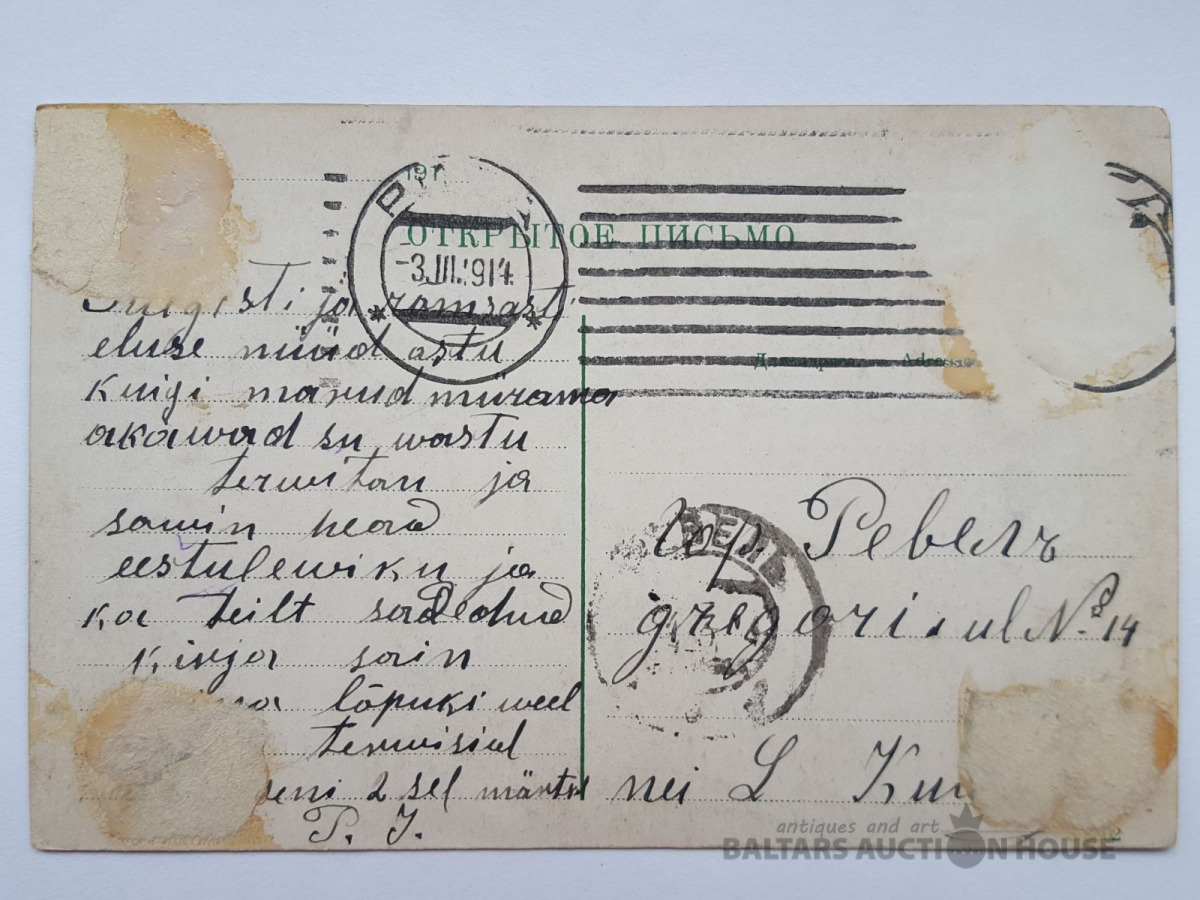 191
ОТКРЫТОЕ ПИСЬМО
-3.III.1914
Adresse
ja
eluse nüüd astu
kuigi marud mürama
akawad su wastu
terwitan ja
sowin head
eestulewiku ja
ka teilt sadedtud
kirja sain
lõpuki weel
terwisid
2 sel märtsi
P. J.
гор. Ревель
gregori. ul № 14
nei L
antiques and art
BALTARS AUCTION HOUSE